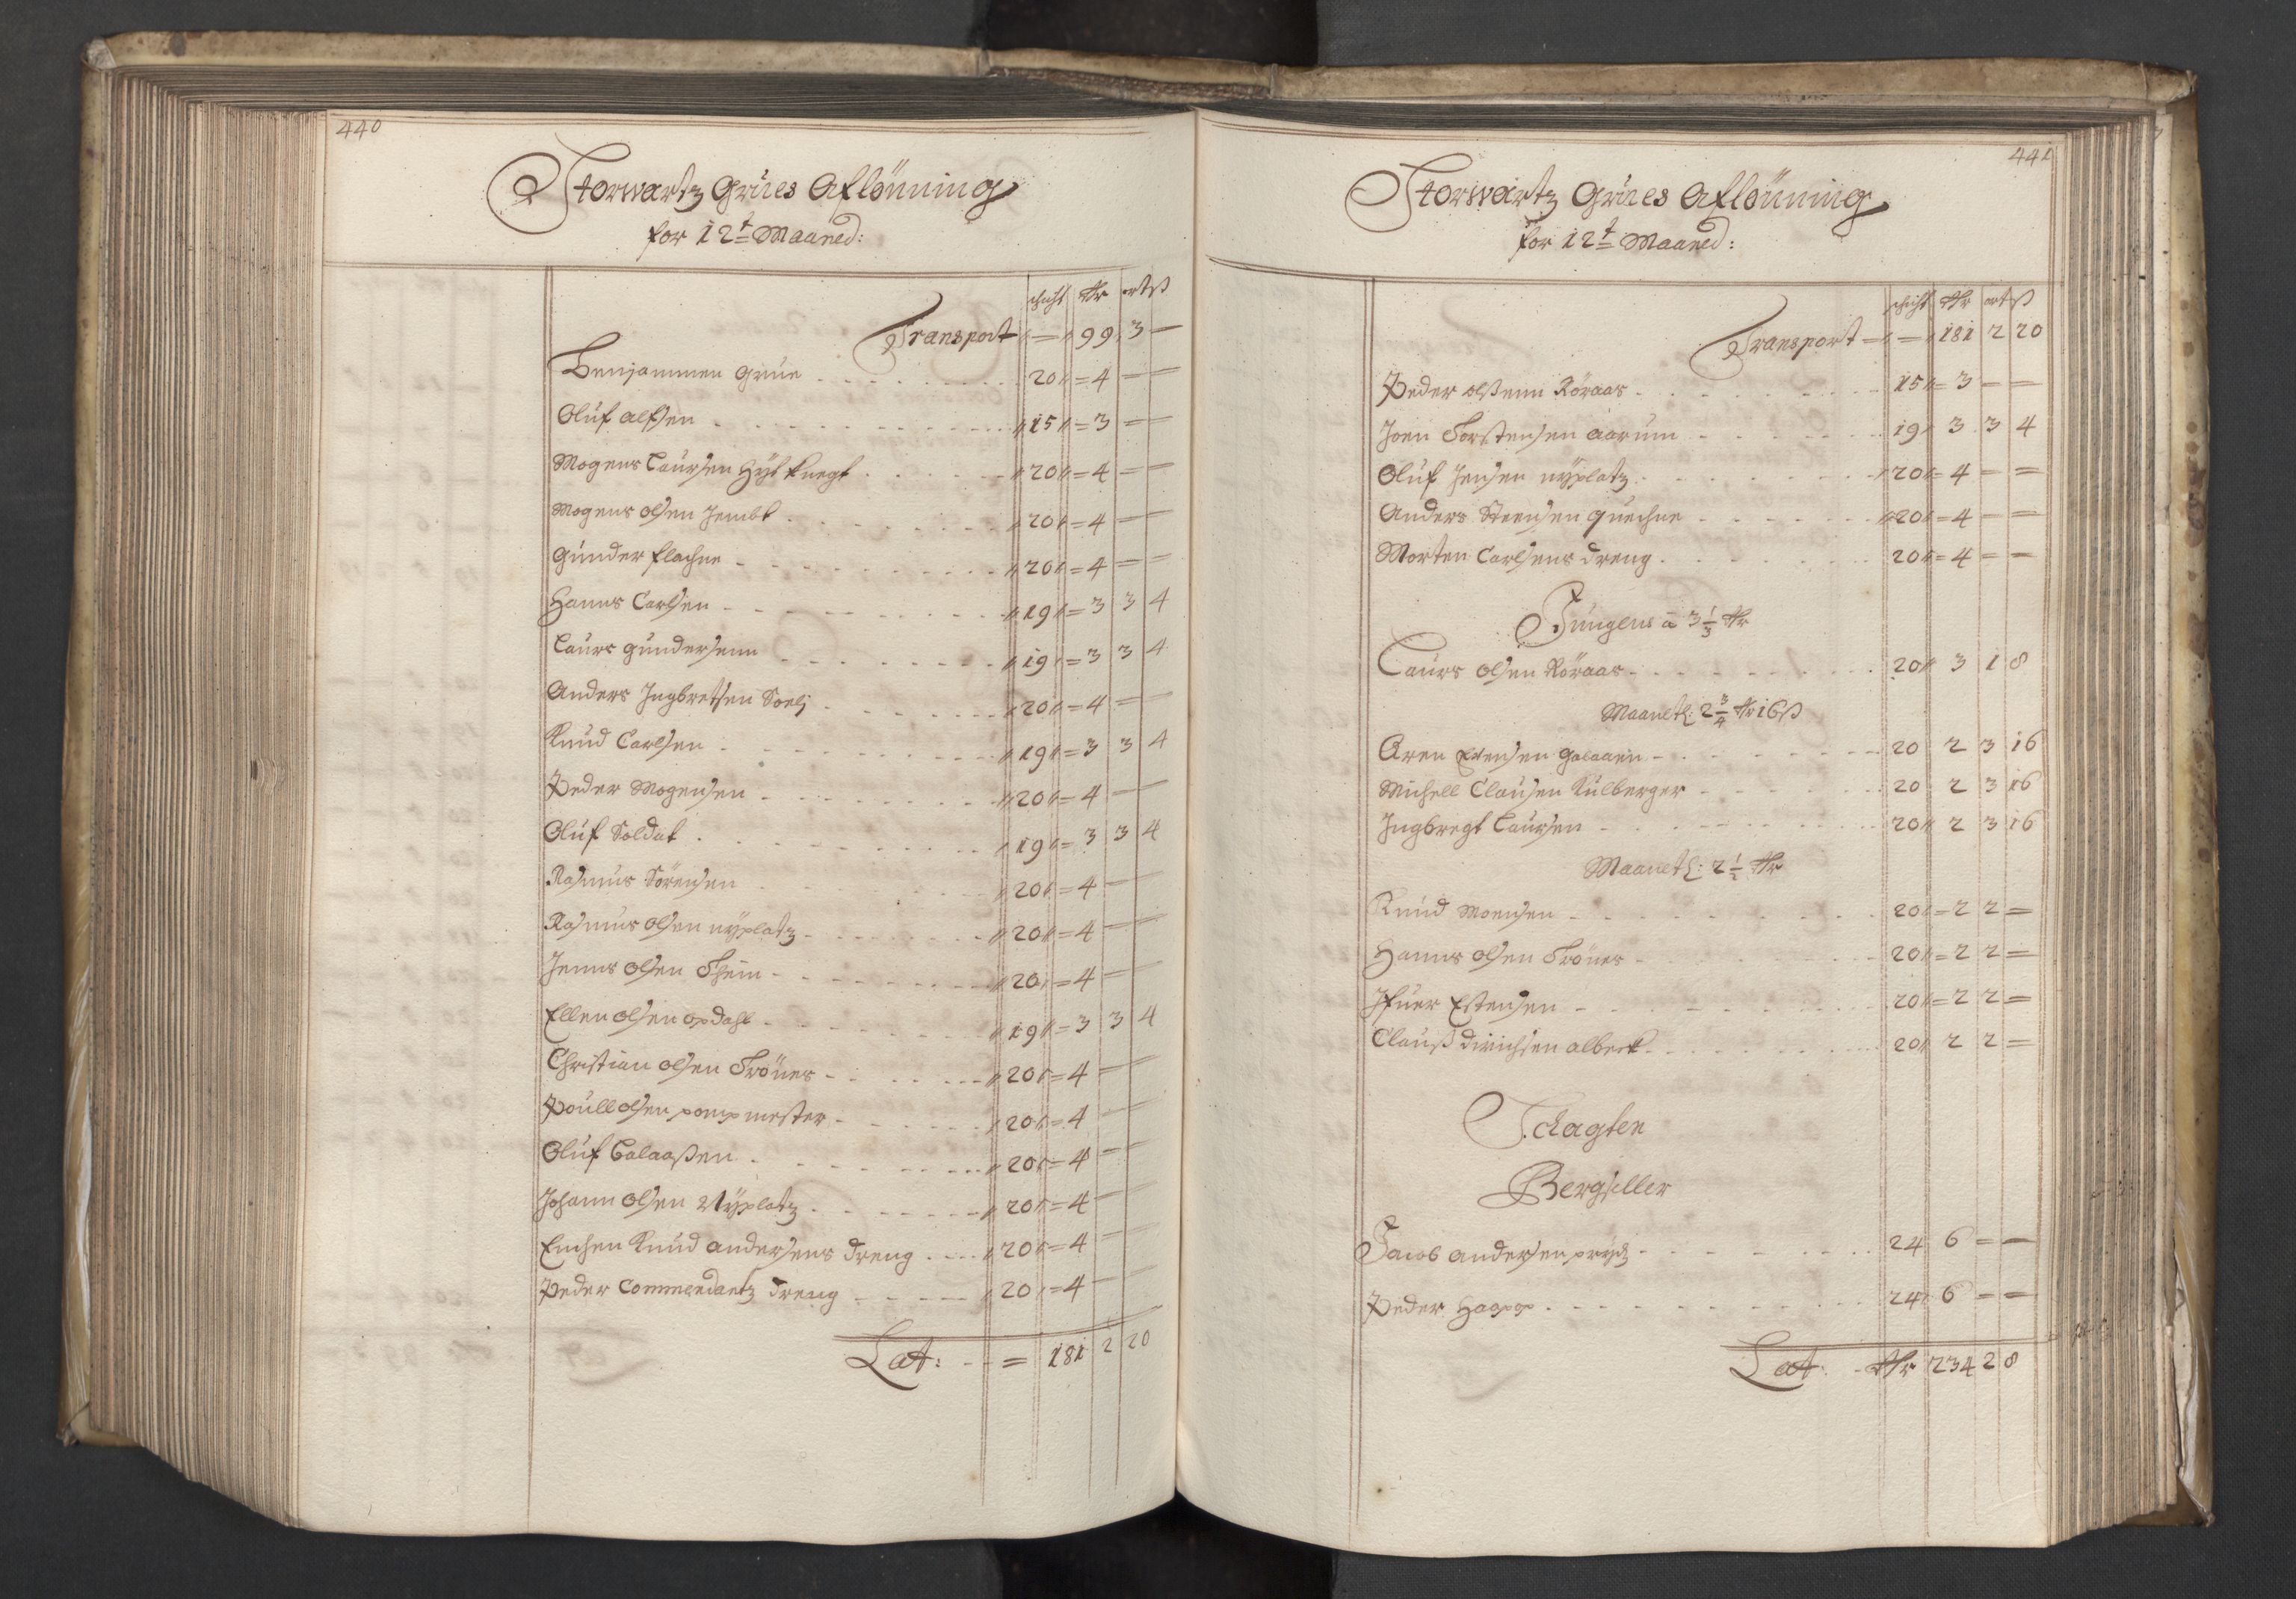 440
Storwartz Grues Aflönning
for 12te Maaned:
schicht Rdr ort ß
Transport — 99 3 —
Benjammen Grue 20 = 4 — —
Oluf Alfsen 15 = 3 — —
Mogens Laursen Hyt knegt 20 = 4 — —
Mogens Olsen Jembt 20 = 4 — —
Gunder flachne 20 = 4 — —
Hanns Carlsen 19 = 3 3 4
Laurs Gundersenn 19 = 3 3 4
Anders Ingbretsen Soelj 20 = 4 — —
Knud Carlsen 19 = 3 3 4
Peder Mogensen 20 = 4 —
Oluf Soldat 19 = 3 3 4
Rasmus Sörensen 20 = 4 —
Rasmus Olsen nyplatz 20 = 4 —
Jenns Olsen Thein 20 = 4 —
Ellen Olsen opdahl 19 = 3 3 4
Christian Olsen Tröner 20 = 4 —
Poull Olsen pompmester 20 = 4 —
Oluf Galaaßen 20 = 4 —
Johann Olsen Nyplatz 20 = 4 —
Knud Andersens dreng 20 = 4 —
Peder Commendantz dreng 20 = 4 —
Lat: = 181 2 20
441
Storwartz Grues Aflönning
for 12te Maaned:
schicht Rdr ort ß
Transport — 181 2 20
Peder olßenn Röraas 15 = 3 — —
Joen Torstensen aarum 19 3 3 4
Oluf Jensen nyplatz 20 = 4 — =
Anders Steensen quechne 20 = 4 — =
Morten Carlsens dreng 20 = 4 — —
Jungens a 3 1/3 Rdr
Laurs Olsen Röraas 20 3 1 8
Maanetl: 2 3/4 Rdr 16ß
Aren Estensen Galaaen 20 2 3 16
Michell Clausen Kulberger 20 2 3 16
Ingbregt Laursen 20 2 3 16
Maanetl: 2 1/2 Rdr
Knud Moensen 20 = 2 2 =
Hanns Olsen Tröner 20 = 2 2 =
Ifuer Estensen 20 = 2 2 =
Clauß dirichsen albeck 20 2 2 =
Schagten
Bergseller
Jacob Andersen prydz 24 6 = —
Peder Happ 24 6 — —
Lat: Rdr 234 2 8